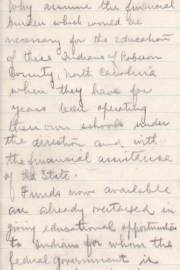 why assume the financial
burden which would be
necessary for the education
of these Indians of Robeson
County, North Carolina
when they have for
years been operating
their own schools under
the direction and with
the financial assistance
of the State.
Funds now available
are already overtaxed in
giving educational opportunities
to Indians for whom the
federal government is